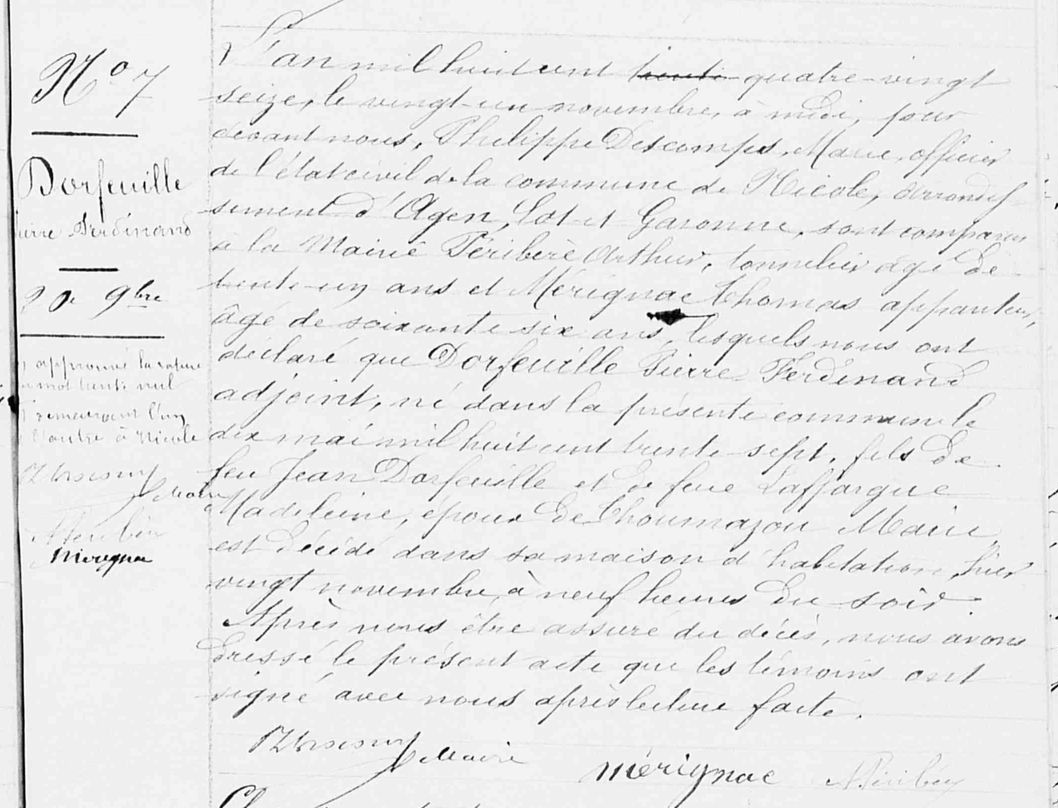 N° 7
Dorfeuille
Pierre Ferdinand
20 9bre
approuvé la rature
mot trente nul
demeurant l'un
et l'autre à Nicole
Maire
Mérignac
L'an mil huit cent trente quatre-vingt
seize, le vingt-un novembre, à midi, par
devant nous, Philippe Descomps, Maire, officier
de l'état civil de la commune de Nicole, arrondis
sement d'Agen, Lot et Garonne, sont comparus
à la Mairie Féribère Arthur, tonnelier âgé de
trente-un ans et Mérignac Thomas appariteur,
âgé de soixante six ans, lesquels nous ont
déclaré que Dorfeuille Pierre Ferdinand
adjoint, né dans la présente commune le
dix mai mil huit cent trente-sept, fils de
feu Jean Dorfeuille et de feue Laffargue
Madeleine, époux de Thoumazou Marie,
est décédé dans sa maison d'habitation, hier
vingt novembre, à neuf heures du soir.
Après nous être assuré du décès, nous avons
dressé le présent acte que les témoins ont
signé avec nous après lecture faite.
Maire
Mérignac